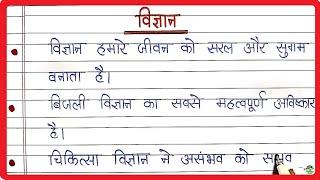 विज्ञान
विज्ञान हमारे जीवन को सरल और सुगम
बनाता है।
बिजली विज्ञान का सबसे महत्वपूर्ण आविष्कार
है।
चिकित्सा विज्ञान ने असंभव को संभव